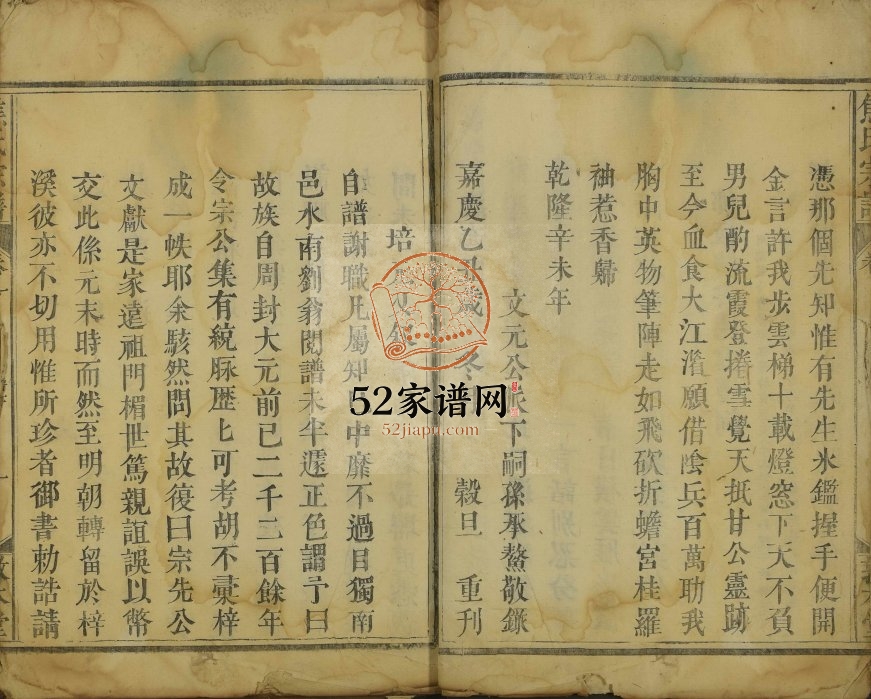 焦氏宗譜
憑那個先知惟有先生氷鑑握手便開
金言許我步雲梯十載燈窓下天不負
男兒酌流霞登捲雪覺天抵甘公靈跡
至今血食大江濱願借陰兵百萬助我
胸中英物筆陣走如飛砍折蟾宮桂羅
袖惹香歸
乾隆辛未年
文元公派下嗣孫承鰲敬錄
嘉慶乙丑歲冬 榖旦 重刊
培
自譜謝職凡屬知中靡不過目獨南
邑水南劉翁閱譜未半遽正色謂予曰
故族自周封大元前已二千三百餘年
令宗公集有統脉歷匕可考胡不彙梓
成一帙耶余駭然問其故復曰宗先公
文獻是家遠祖門楣世篤親誼誤以幣
交此係元末時而然至明朝轉留於梓
溪彼亦不切用惟所珍者御書勅誥請
52家谱网
52jiapu.com